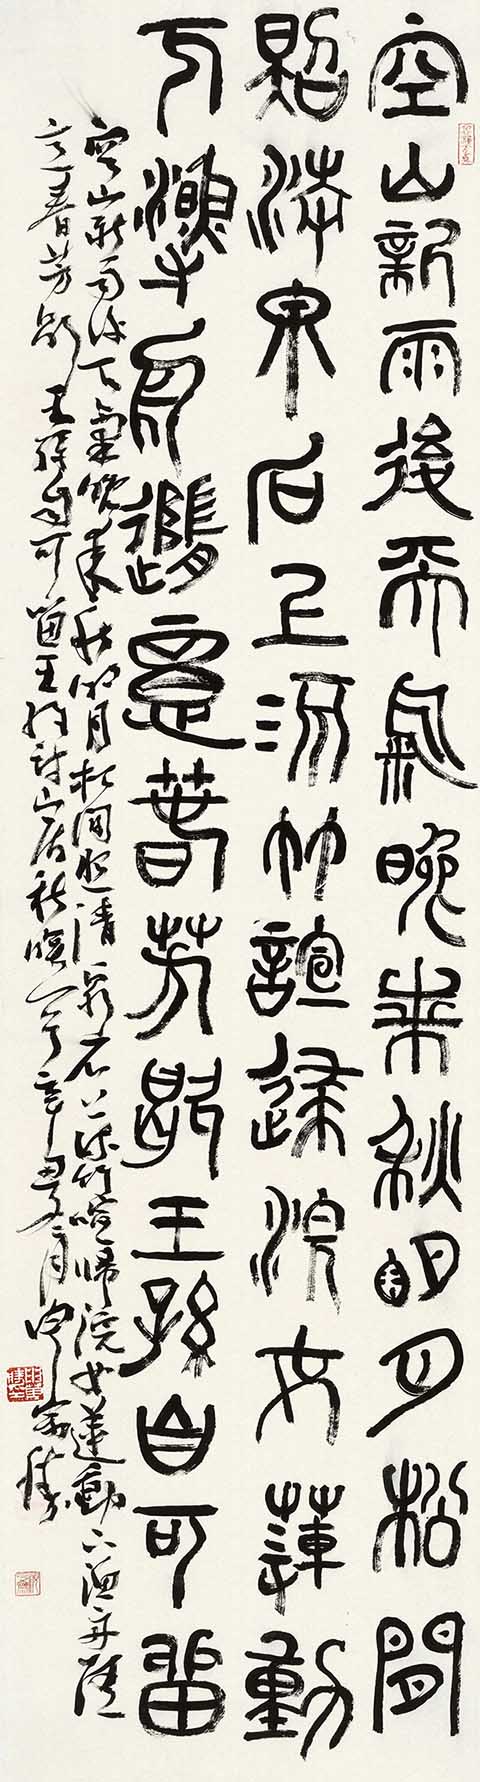 空山新雨後天氣晚來秋明月松間
照清泉石上流竹諠歸浣女蓮動
下漁舟隨意春芳歇王孫自可留
空山新雨後天氣晚來秋明月松間照清泉石上流竹喧歸浣女蓮動下漁舟隨
意春芳歇王孫自可留王維詩山居秋暝一首辛丑月申萬勝